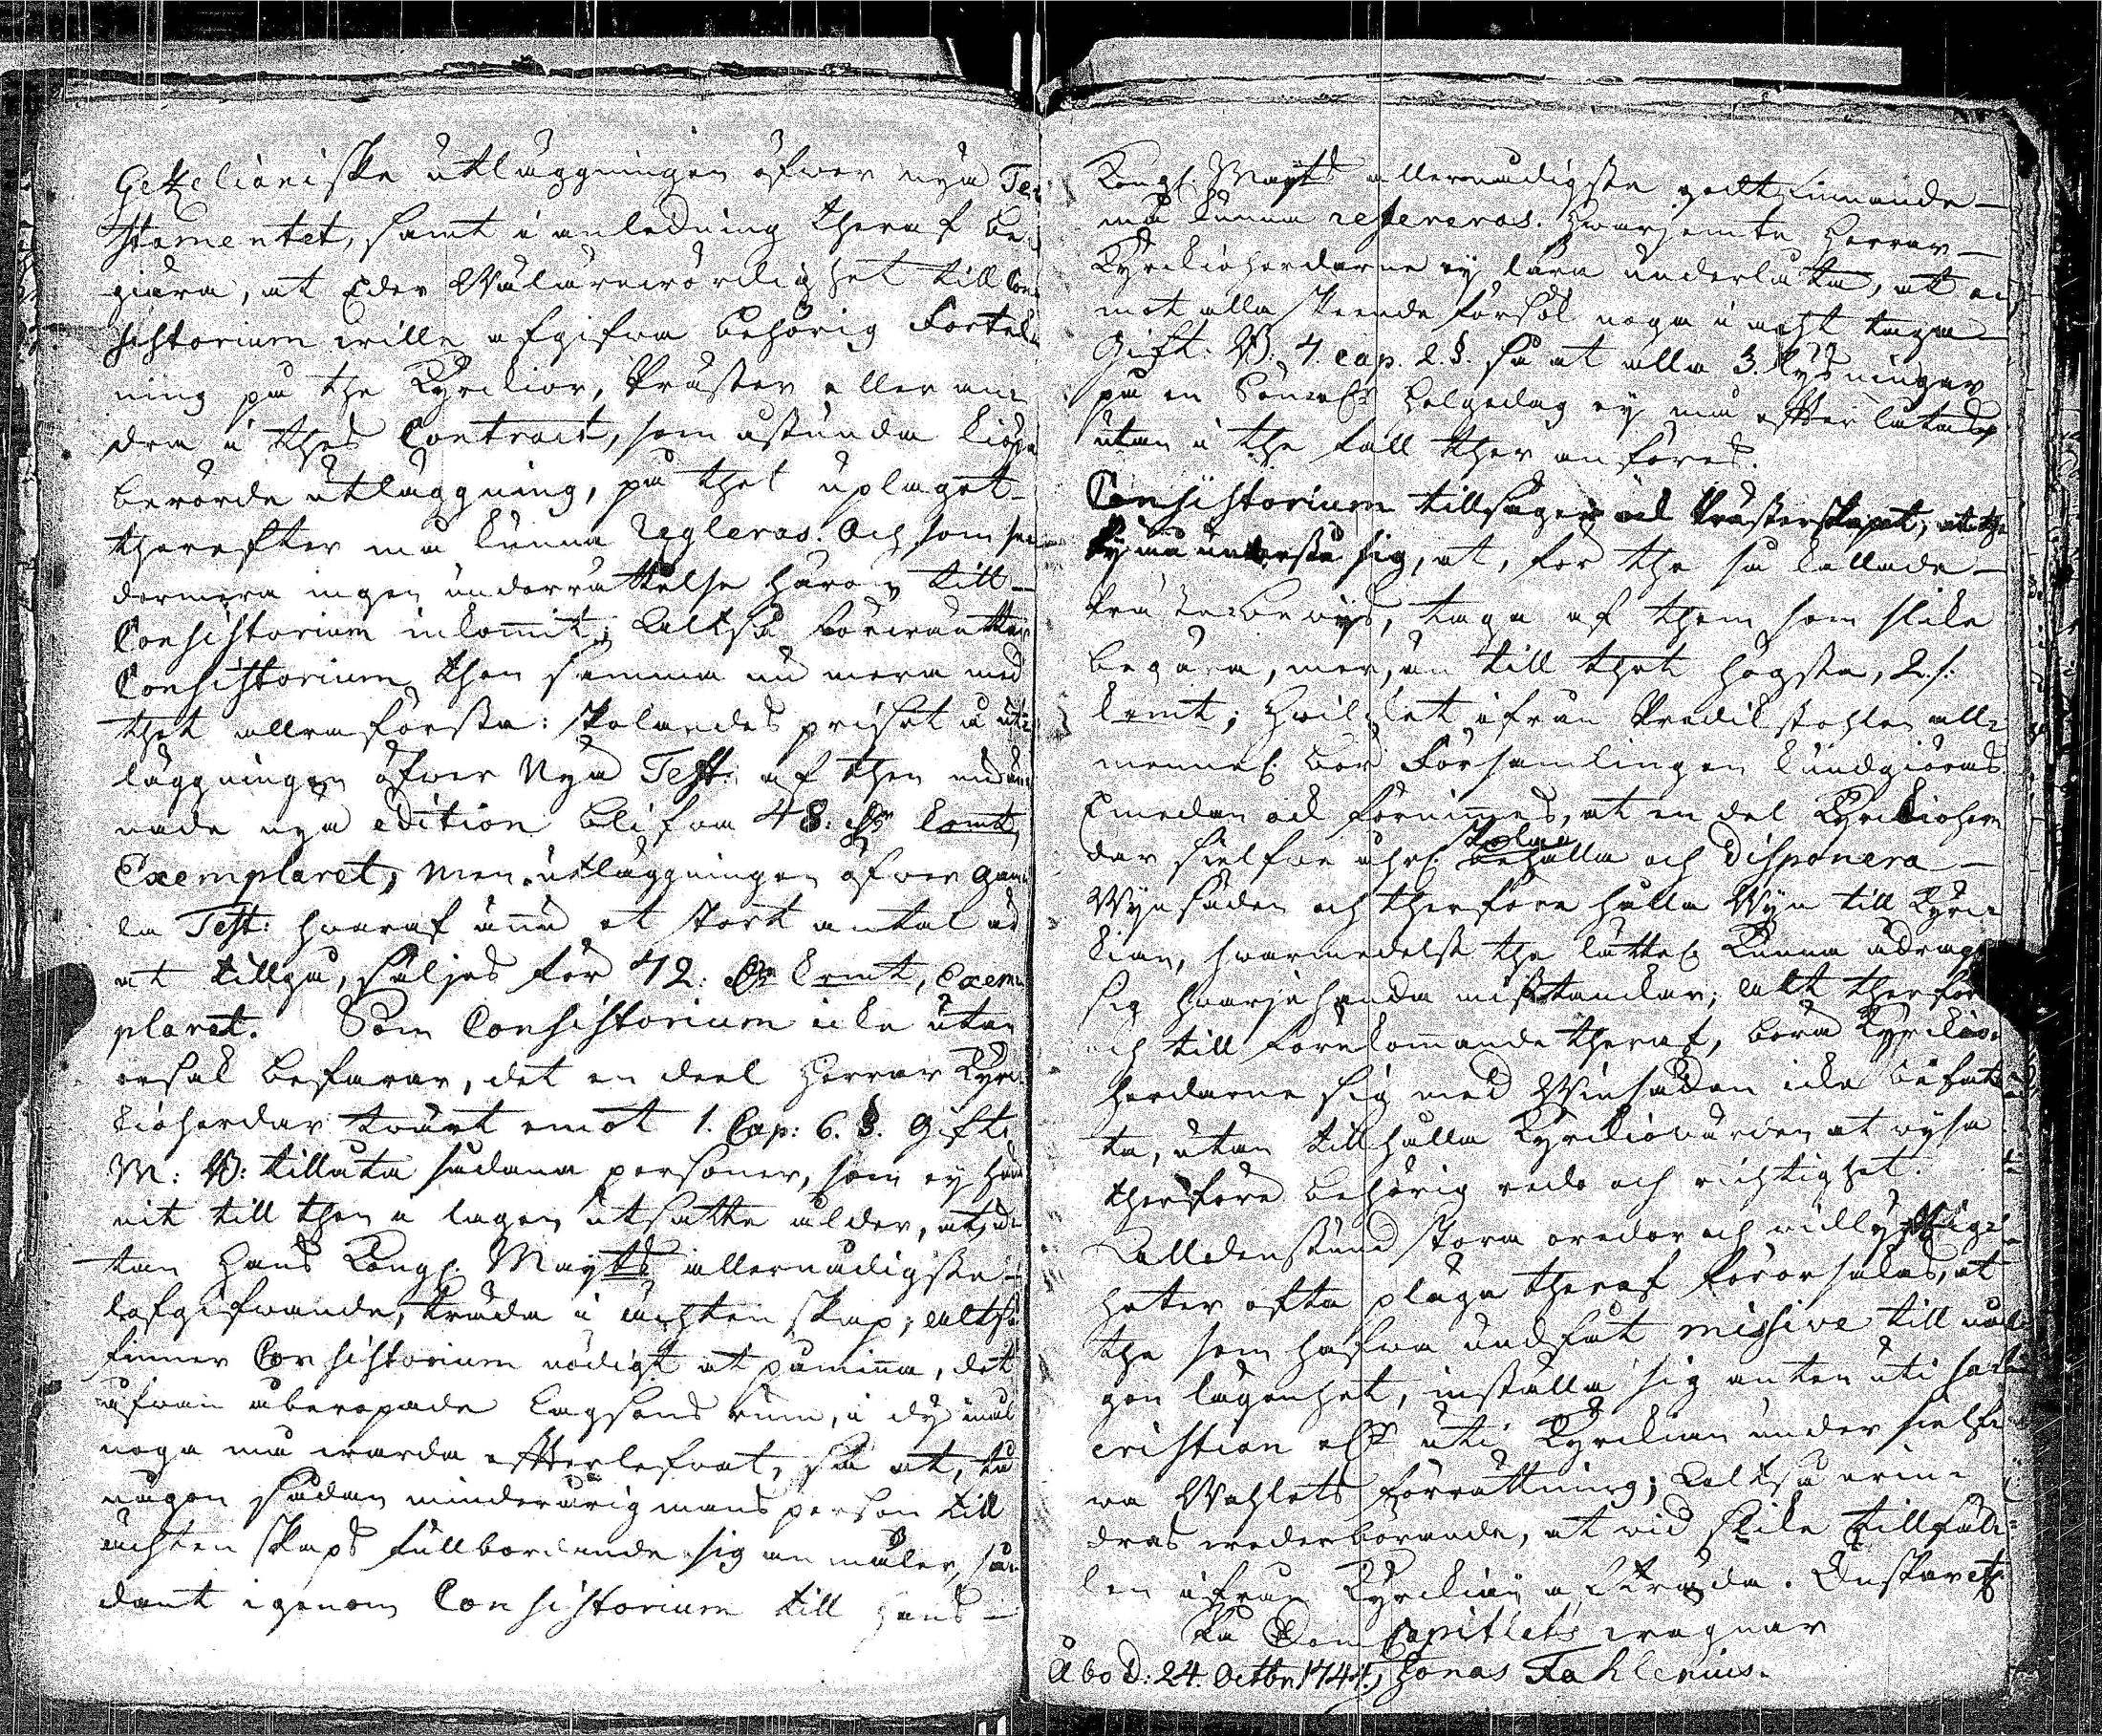 Gezelianiske utläggningen öfwer nya Te-
stamentet, samt i anledning theraf be-
giära, at Eder Wälärewördighet till Con-
sistorium wille afgifwa behörig förtek-
ning på the Kyrckior, Präster eller an-
dra i thes Contract, som åstunda kiöpa
berörde utläggning, på thet uplaget
therefter må kunna regleras. Och som se-
dermera ingen underrättelse härom till
Consistorium inkommit; Altså förwäntar
Consistorium then samma nu mera med
thet alraförsta: skolandes priset å ut-
läggningen öfwer Nya Test: af then
nya edition blifwa 48: öre kmt,
Exemplaret, men utläggningen öfwer gam-
la Test: hwaraf ännu et stort antal är
at tillgå, säljes för 42: öre kmt, exem-
plaret. Som Consistorium icke utan
orsak befarar, det en deel Herrar Kyrc-
kioherdar twärt emot 1. Cap: 6. §. Gifter-
M: B: tillåta sådana personer, som ey hun-
nit till then i lagen utsatte ålder, at, u-
tan Hans Kongl. Mayts allernådigste
lofgifwande, träda i ächtenskap; altså
finner Consistorium nödigt at påminna, det
ofwan åberopade Lagsens rum, i dy mål
noga må warda efterlefwat, så at, då
någon sådan minderårig mansperson till
ächtenskaps fullbordande sig anmäler, så-
dant igenom Consistorium till Hans
Kongl. Mayts allernådigste godtfinnande
må kunna refereras. Hwarjemte Herrar
Kyrckioherdarne ey lära underlåta, at
mot alla skeende försök noga i acht taga
Gift: B: 7. cap. 2. §. så at alla 3. lysningar
på en Sön- Helgedag ey må efterlåtas
utan i the fall ther anföres.
Consistorium tillsäger ock Prästerskapet, at the
ey må understå sig, at, för the så kallade
bewis, taga af them som slike
begära, mer, än till thet högsta, 2. s:
kmt; hwilket ifrån Predikstohlen all-
männel. bör Församlingen kundgiöras.
Emedan ock förnimmes, at en del Kyrckioher-
dar sielfwe uhrl. skola behålla och disponera
Wynsäden och therföre hålla Wyn till Kyrc-
kian, hwarmedelst the lättel. kunna ådraga
sig hwarjehanda misstankar; Alt therföre
och till förekommande theraf, böra Kyrckio-
herdarne sig med Winsäden icke befat-
ta, utan tillhålla Kyrckiowärden at wysa
therföre behörig redo och richtighet.
Alldenstund stora oredor och widlyftig-
heter ofta plaga theraf förorsakas, at
the som hafwa undfåt missive till nå-
gon lägenhet, inställa sig anten uti sa-
cristian ell. uti Kyrckian under sielf-
wa Wahlets förrättning; Altså erin-
dras wederbörande, at wid slike tillfäl-
len ifrån Kyrckian afträda. Önskar etc.
På DomCapitlets wägnar
Åbo d: 24. Octbr 1744. Jonas Fahlenius.